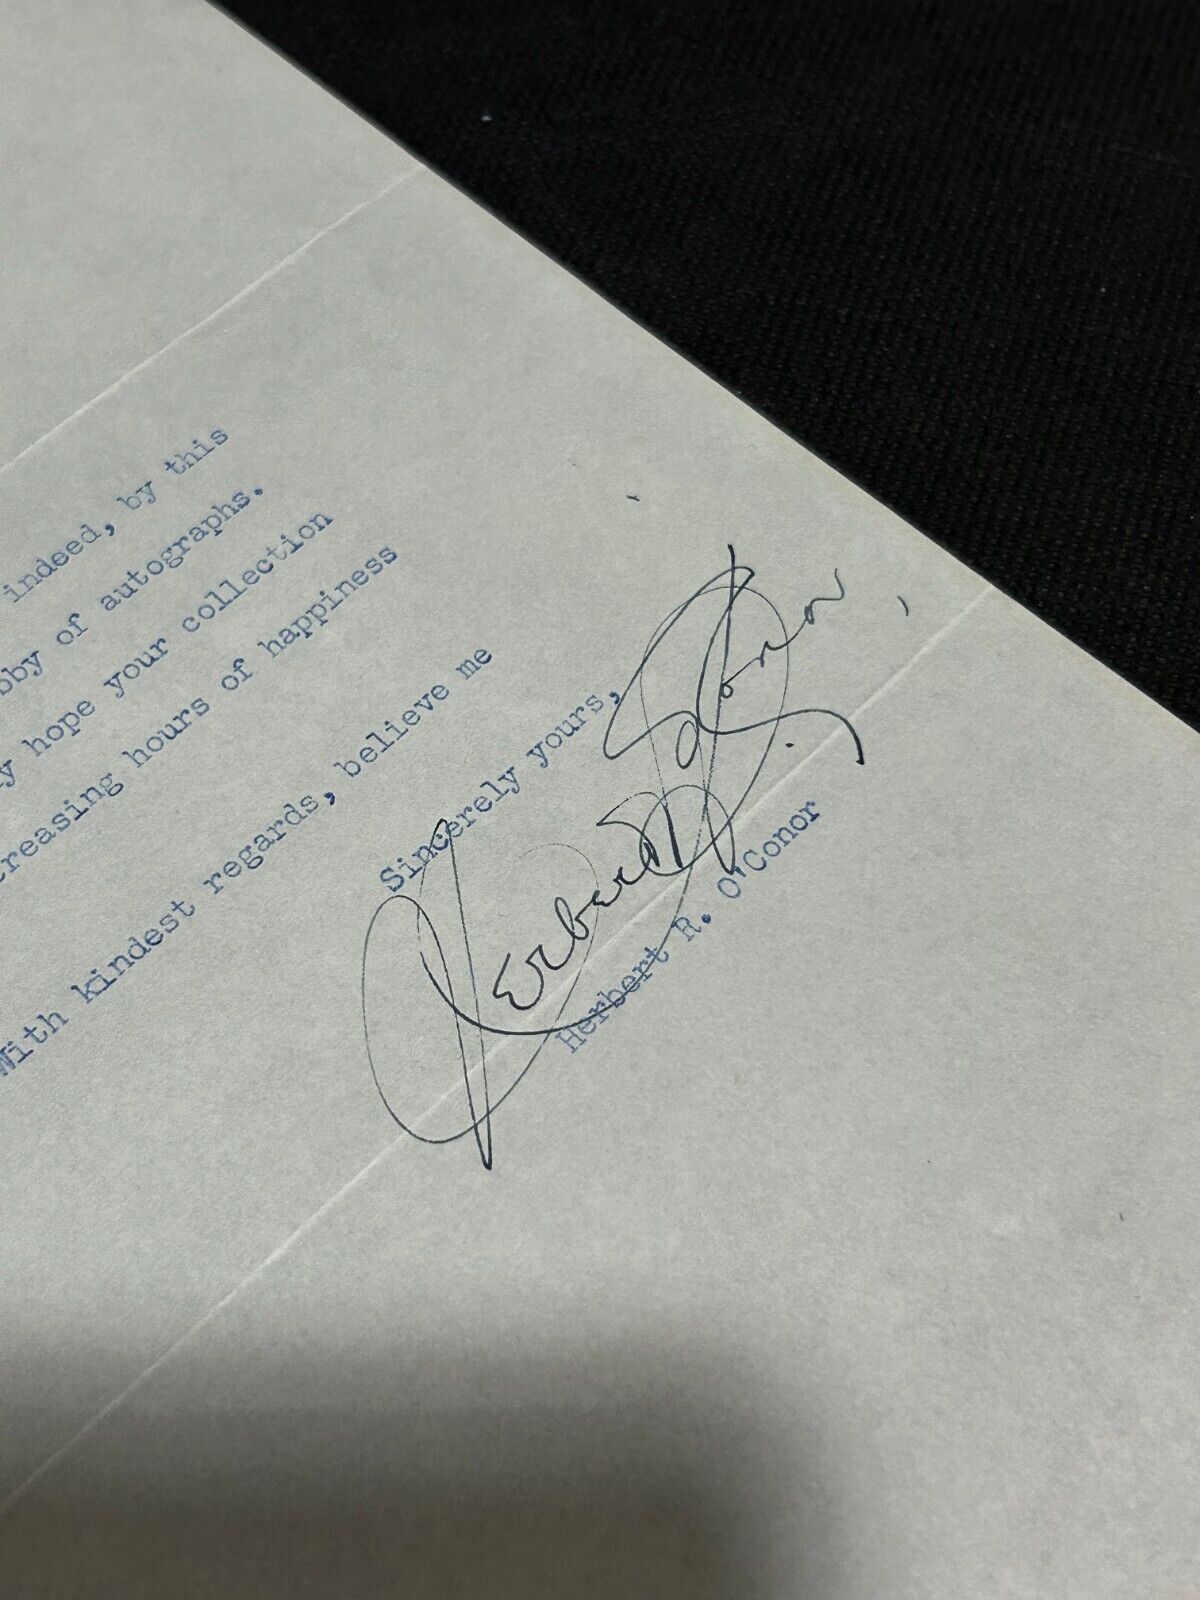 indeed, by this
bby of autographs.
y hope your collection
creasing hours of happiness
With kindest regards, believe me
Sincerely yours,
Herbert R. O'Conor
Herbert R. O'Conor